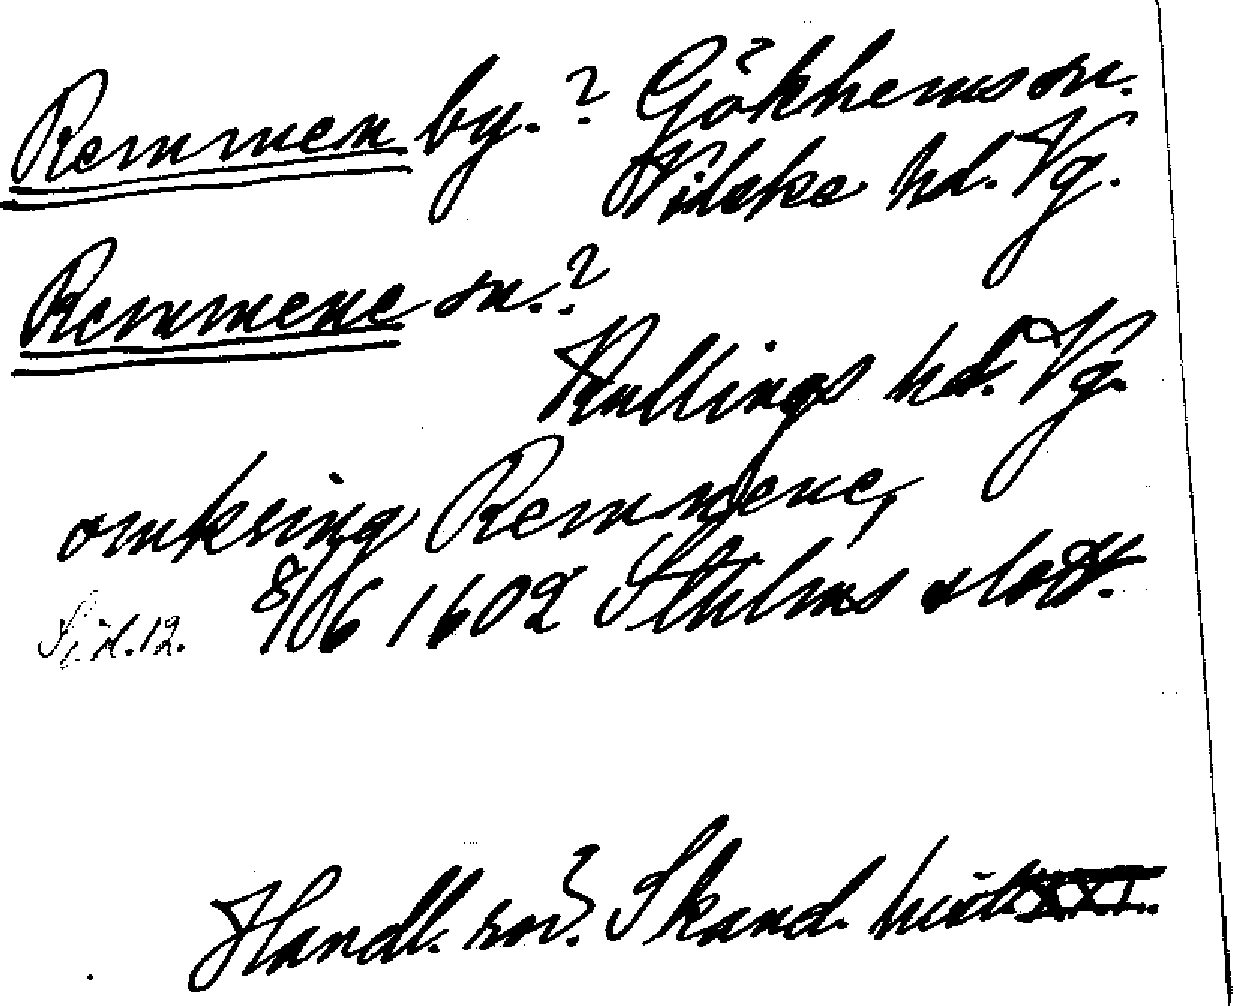 Remmen by.? Gökhems sn.
Vilske hd. Vg.
Remmene sn.?
Kullings hd. Vg.
omkring Remmene,
Sid. 12. 8/06 1602 Sthlms slott.
Handl. rör. Skand. hist. XXI.